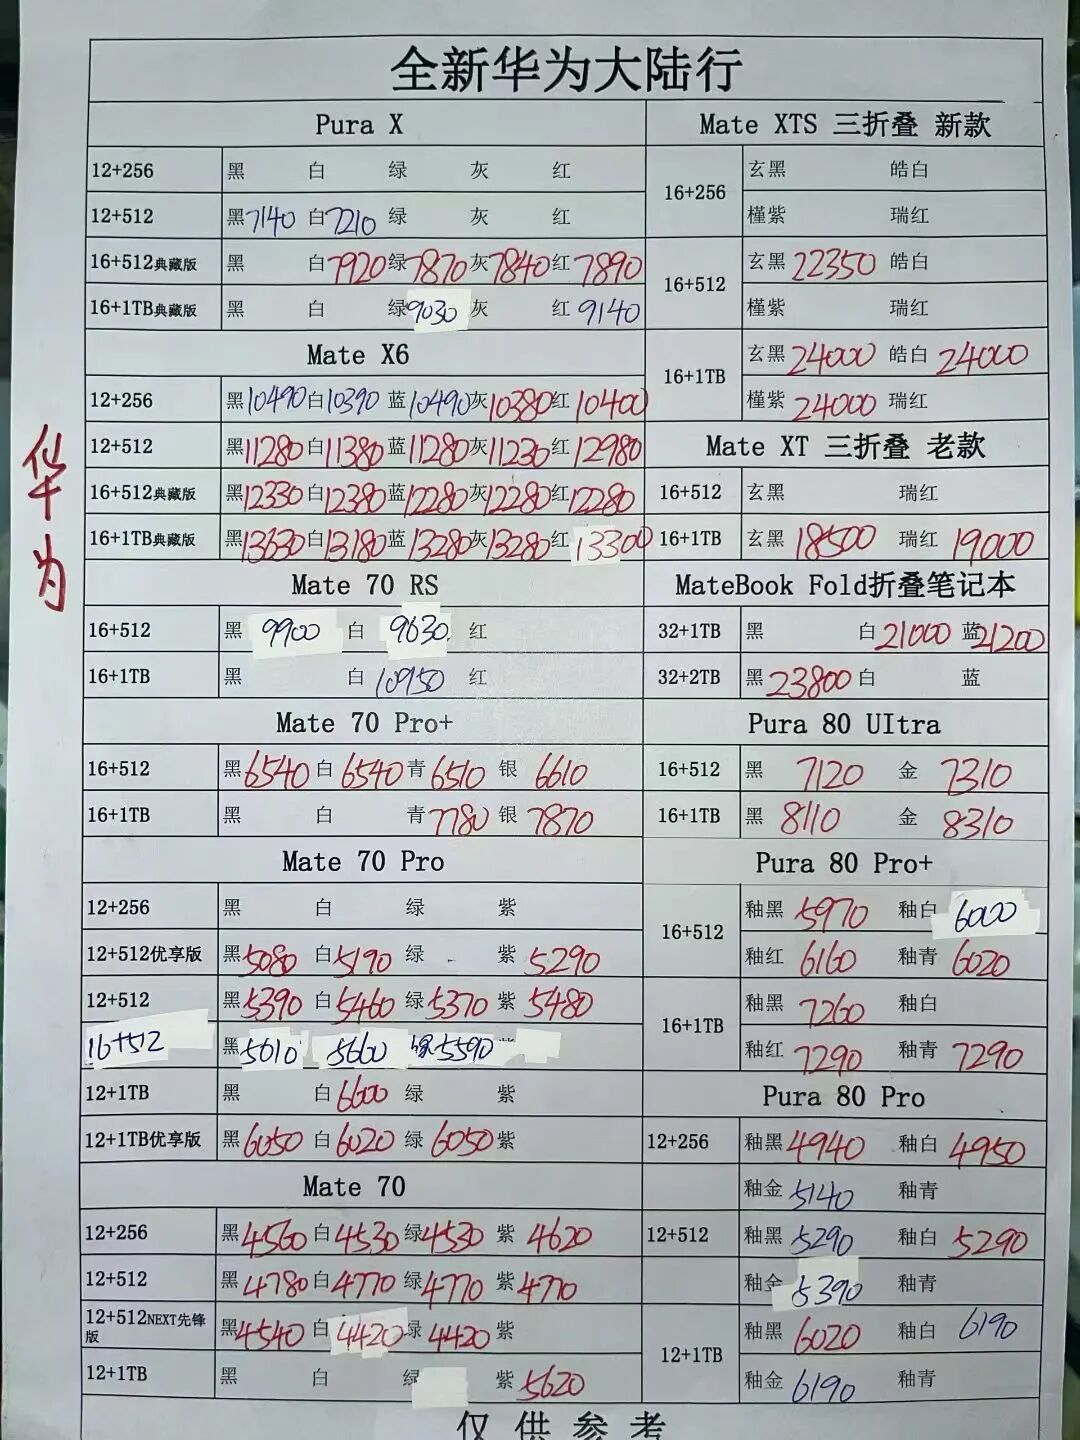 全新华为大陆行
华为
Pura X
12+256 黑 白 绿 灰 红
12+512 黑7140 白7210 绿 灰 红
16+512典藏版 黑 白7920 绿7870 灰7840 红7890
16+1TB典藏版 黑 白 绿9030 灰 红9140
Mate X6
12+256 黑10490 白10390 蓝10490 灰10380 红10400
12+512 黑11280 白11380 蓝11280 灰11230 红12980
16+512典藏版 黑12330 白12380 蓝12280 灰12280 红12280
16+1TB典藏版 黑13630 白13180 蓝13280 灰13280 红13300
Mate 70 RS
16+512 黑9900 白9630 红
16+1TB 黑 白10950 红
Mate 70 Pro+
16+512 黑6540 白6540 青6510 银6610
16+1TB 黑 白 青7780 银7870
Mate 70 Pro
12+256 黑 白 绿 紫
12+512优享版 黑5080 白5190 绿 紫5290
12+512 黑5390 白5460 绿5370 紫5480
16+512 黑5610 5660 绿5590
12+1TB 黑 白6600 绿 紫
12+1TB优享版 黑6050 白6020 绿6050 紫
Mate 70
12+256 黑4560 白4530 绿4530 紫4620
12+512 黑4780 白4770 绿4770 紫4770
12+512NEXT先锋版 黑4540 白4420 绿4420 紫
12+1TB 黑 白 绿 紫5620
Mate XTS 三折叠 新款
16+256 玄黑 皓白
槿紫 瑞红
16+512 玄黑22350 皓白
槿紫 瑞红
16+1TB 玄黑24000 皓白24000
槿紫24000 瑞红
Mate XT 三折叠 老款
16+512 玄黑 瑞红
16+1TB 玄黑18500 瑞红19000
MateBook Fold折叠笔记本
32+1TB 黑 白21000 蓝21200
32+2TB 黑23800 白 蓝
Pura 80 UItra
16+512 黑7120 金7310
16+1TB 黑8110 金8310
Pura 80 Pro+
16+512 釉黑5970 釉白6000
釉红6160 釉青6020
16+1TB 釉黑7260 釉白
釉红7290 釉青7290
Pura 80 Pro
12+256 釉黑4940 釉白4950
釉金5140 釉青
12+512 釉黑5290 釉白5290
釉金5390 釉青
12+1TB 釉黑6020 釉白6190
釉金6190 釉青
仅供参考